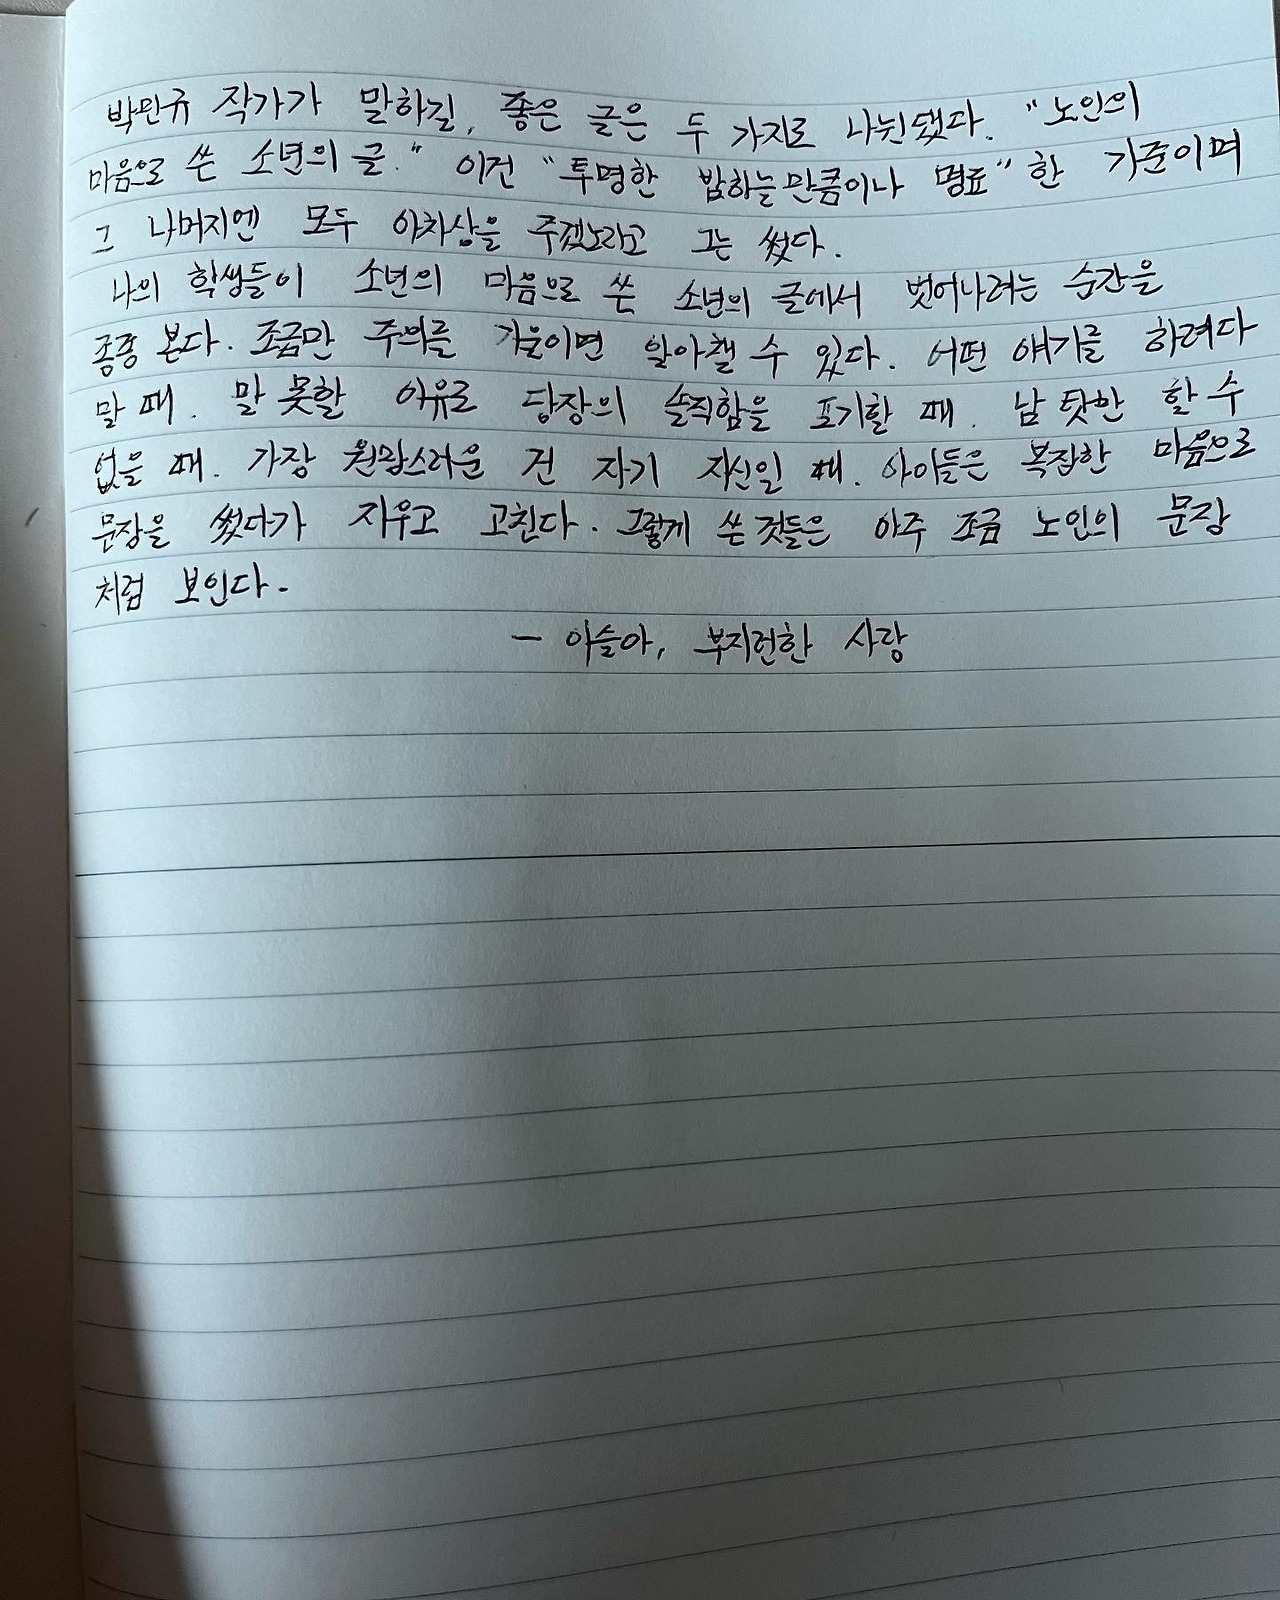 박민규 작가가 말하길, 좋은 글은 두 가지로 나뉜댔다. "노인의
마음으로 쓴 소년의 글." 이건 "투명한 밥하늘만큼이나 명료"한 기준이며
그 나머지엔 모두 아차상을 주겠노라고 그는 썼다.
나의 학생들이 소년의 마음으로 쓴 소년의 글에서 벗어나려는 순간을
종종 본다. 조금만 주의를 기울이면 알아챌 수 있다. 어떤 얘기를 하려다
말 때. 말 못할 이유로 당장의 솔직함을 포기할 때. 남 탓만 할 수
없을 때. 가장 원망스러운 건 자기 자신일 때. 아이들은 복잡한 마음으로
문장을 썼다가 지우고 고친다. 그렇게 쓴 것들은 아주 조금 노인의 문장
처럼 보인다.
- 이슬아, 부지런한 사랑